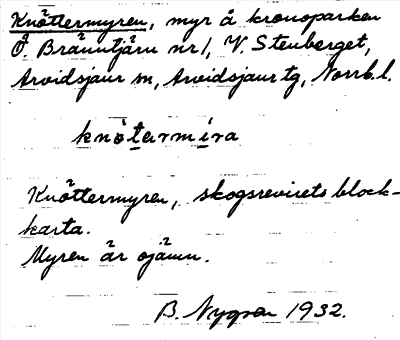 Knöttermyren, myr å kronoparken
Ö. Brännträn nr 1, V. Stenberget,
Arvidsjaur sn, Arvidsjaur tg, Norrb. l.
knötermira
Knöttermyren, skogsrevirets block-
karta.
Myren är ojämn.
B. Nygren 1932.